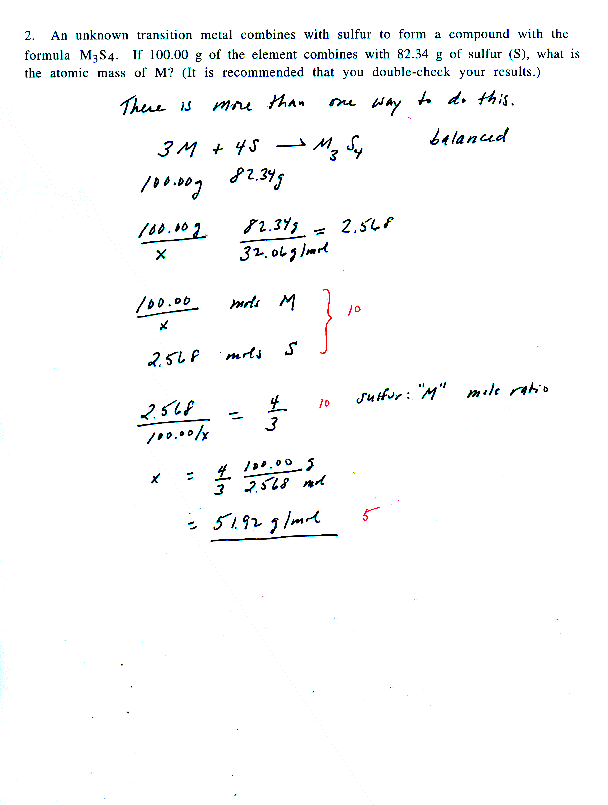 2. An unknown transition metal combines with sulfur to form a compound with the
formula M3S4. If 100.00 g of the element combines with 82.34 g of sulfur (S), what is
the atomic mass of M? (It is recommended that you double-check your results.)
There is more than one way to do this.
3M + 4S → M3S4 balanced
100.00g 82.34g
100.00g/x 82.34g/32.06g/mol = 2.568
100.00/x mols M } 10
2.568 mols S
2.568/100.00/x = 4/3 10 sulfur: "M" mole ratio
x = 4/3 100.00 g/2.568 mol
= 51.92 g/mol 5